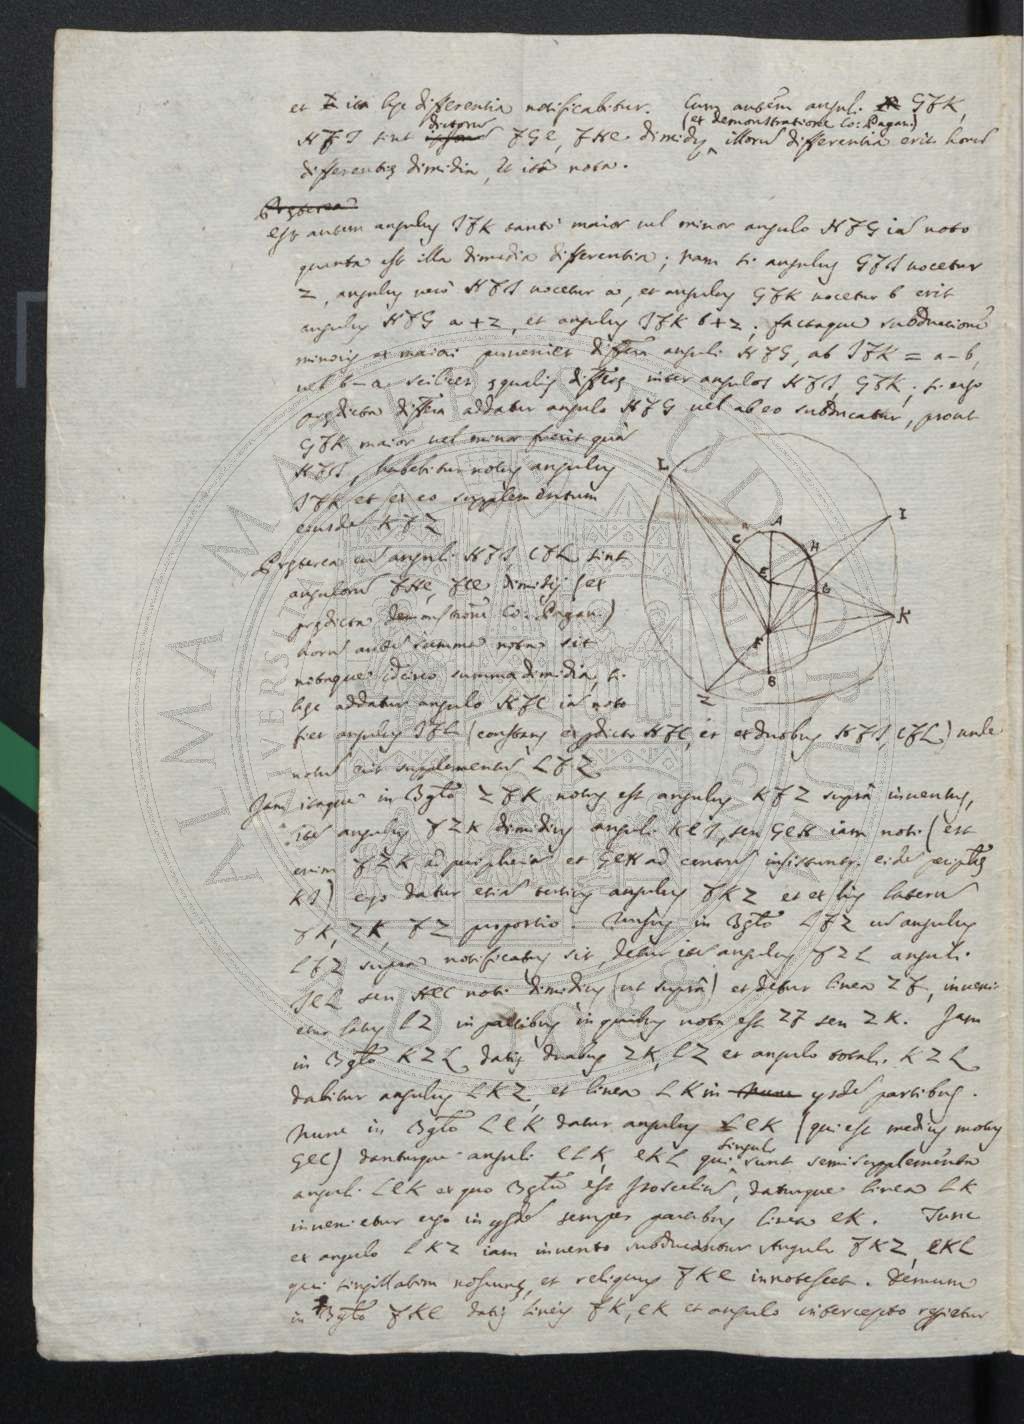 et ita hęc differentia notificabitur. Cum autem anguli GFK,
(ex demonstratione Co: Pagani)
HFI sint dictorum FGE, FHE dimidij illorum differentia erit horum
differentię dimidia, et ita nota.
Pręterea
Est autem angulus IFK tanto maior vel minor angulo HFG iam noto
quanta est illa dimidia differentia; nam si angulus GFI vocetur
z, angulus vero HFI vocetur a, et angulus GFK vocetur b erit
angulus HFG a+z, et angulus IFK b+z; factaque subductione
minoris ex maiori proveniet differentia anguli HFG, ab IFK = a-b,
vel b-a scilicet ęqualis differentię inter angulos HFI, GFK; si ergo
prędicta differentia addatur angulo HFG vel ab eo subducatur, prout
GFK maior vel minor fuerit quam
HFI, habebitur notus angulus
IFK et ex eo supplementum
eiusdem KFZ
Pręterea cum anguli HFI, CFL sint
angulorum FHE, FCE dimidij (ex
prędicta demonstratione Co: Pagani)
horum autem summa nota sit
notaque idcirco summa dimidia, si
hęc addatur angulo HFC iam noto
fiet angulus IFL (constans ex dicto HFC, et ex duobus HFI, CFL) unde
notum erit supplementum LFZ
Jam itaque in 3gło ZFK notus est angulus KFZ supra inventus,
item angulus FZK dimidius anguli KEI, seu GEH iam noti (est
enim FZK ad peripheriam et GEH ad centrum insistuntque eidem peripherię
KI) ergo datur etiam tertius angulus FKZ et ex his laterum
FK, ZK, FZ proportio. Rursus in 3gło LFZ cum angulus
LFZ supra notificatus sit, detur item angulus FZL anguli
IEL seu HEC noti dimidius (ut supra) et detur linea ZF, inveni-
etur latus LZ in partibus in quibus nota est ZF seu ZK. Jam
in 3gło KZL datis duabus ZK, LZ et angulo totali KZL
dabitur angulus LKZ, et linea LK in ijsdem partibus.
Nunc in 3gło LEK datur angulus LEK (qui est medius motus
GEC) danturque anguli ELK, EKL qui singuli sunt semisupplementa
anguli LEK ex quo 3głum est Isoscelium, daturque linea LK
invenietur ergo in ijsdem semper partibus linea EK. Tunc
ex angulo LKZ iam invento subducantur Anguli FKZ, EKL
qui singillatim noscuntur, et reliquus FKE innotescet. Demum
in 3gło FKE datis lineis FK, EK et angulo intercepto reperietur
L
I
A
C
H
E
G
K
F
B
Z